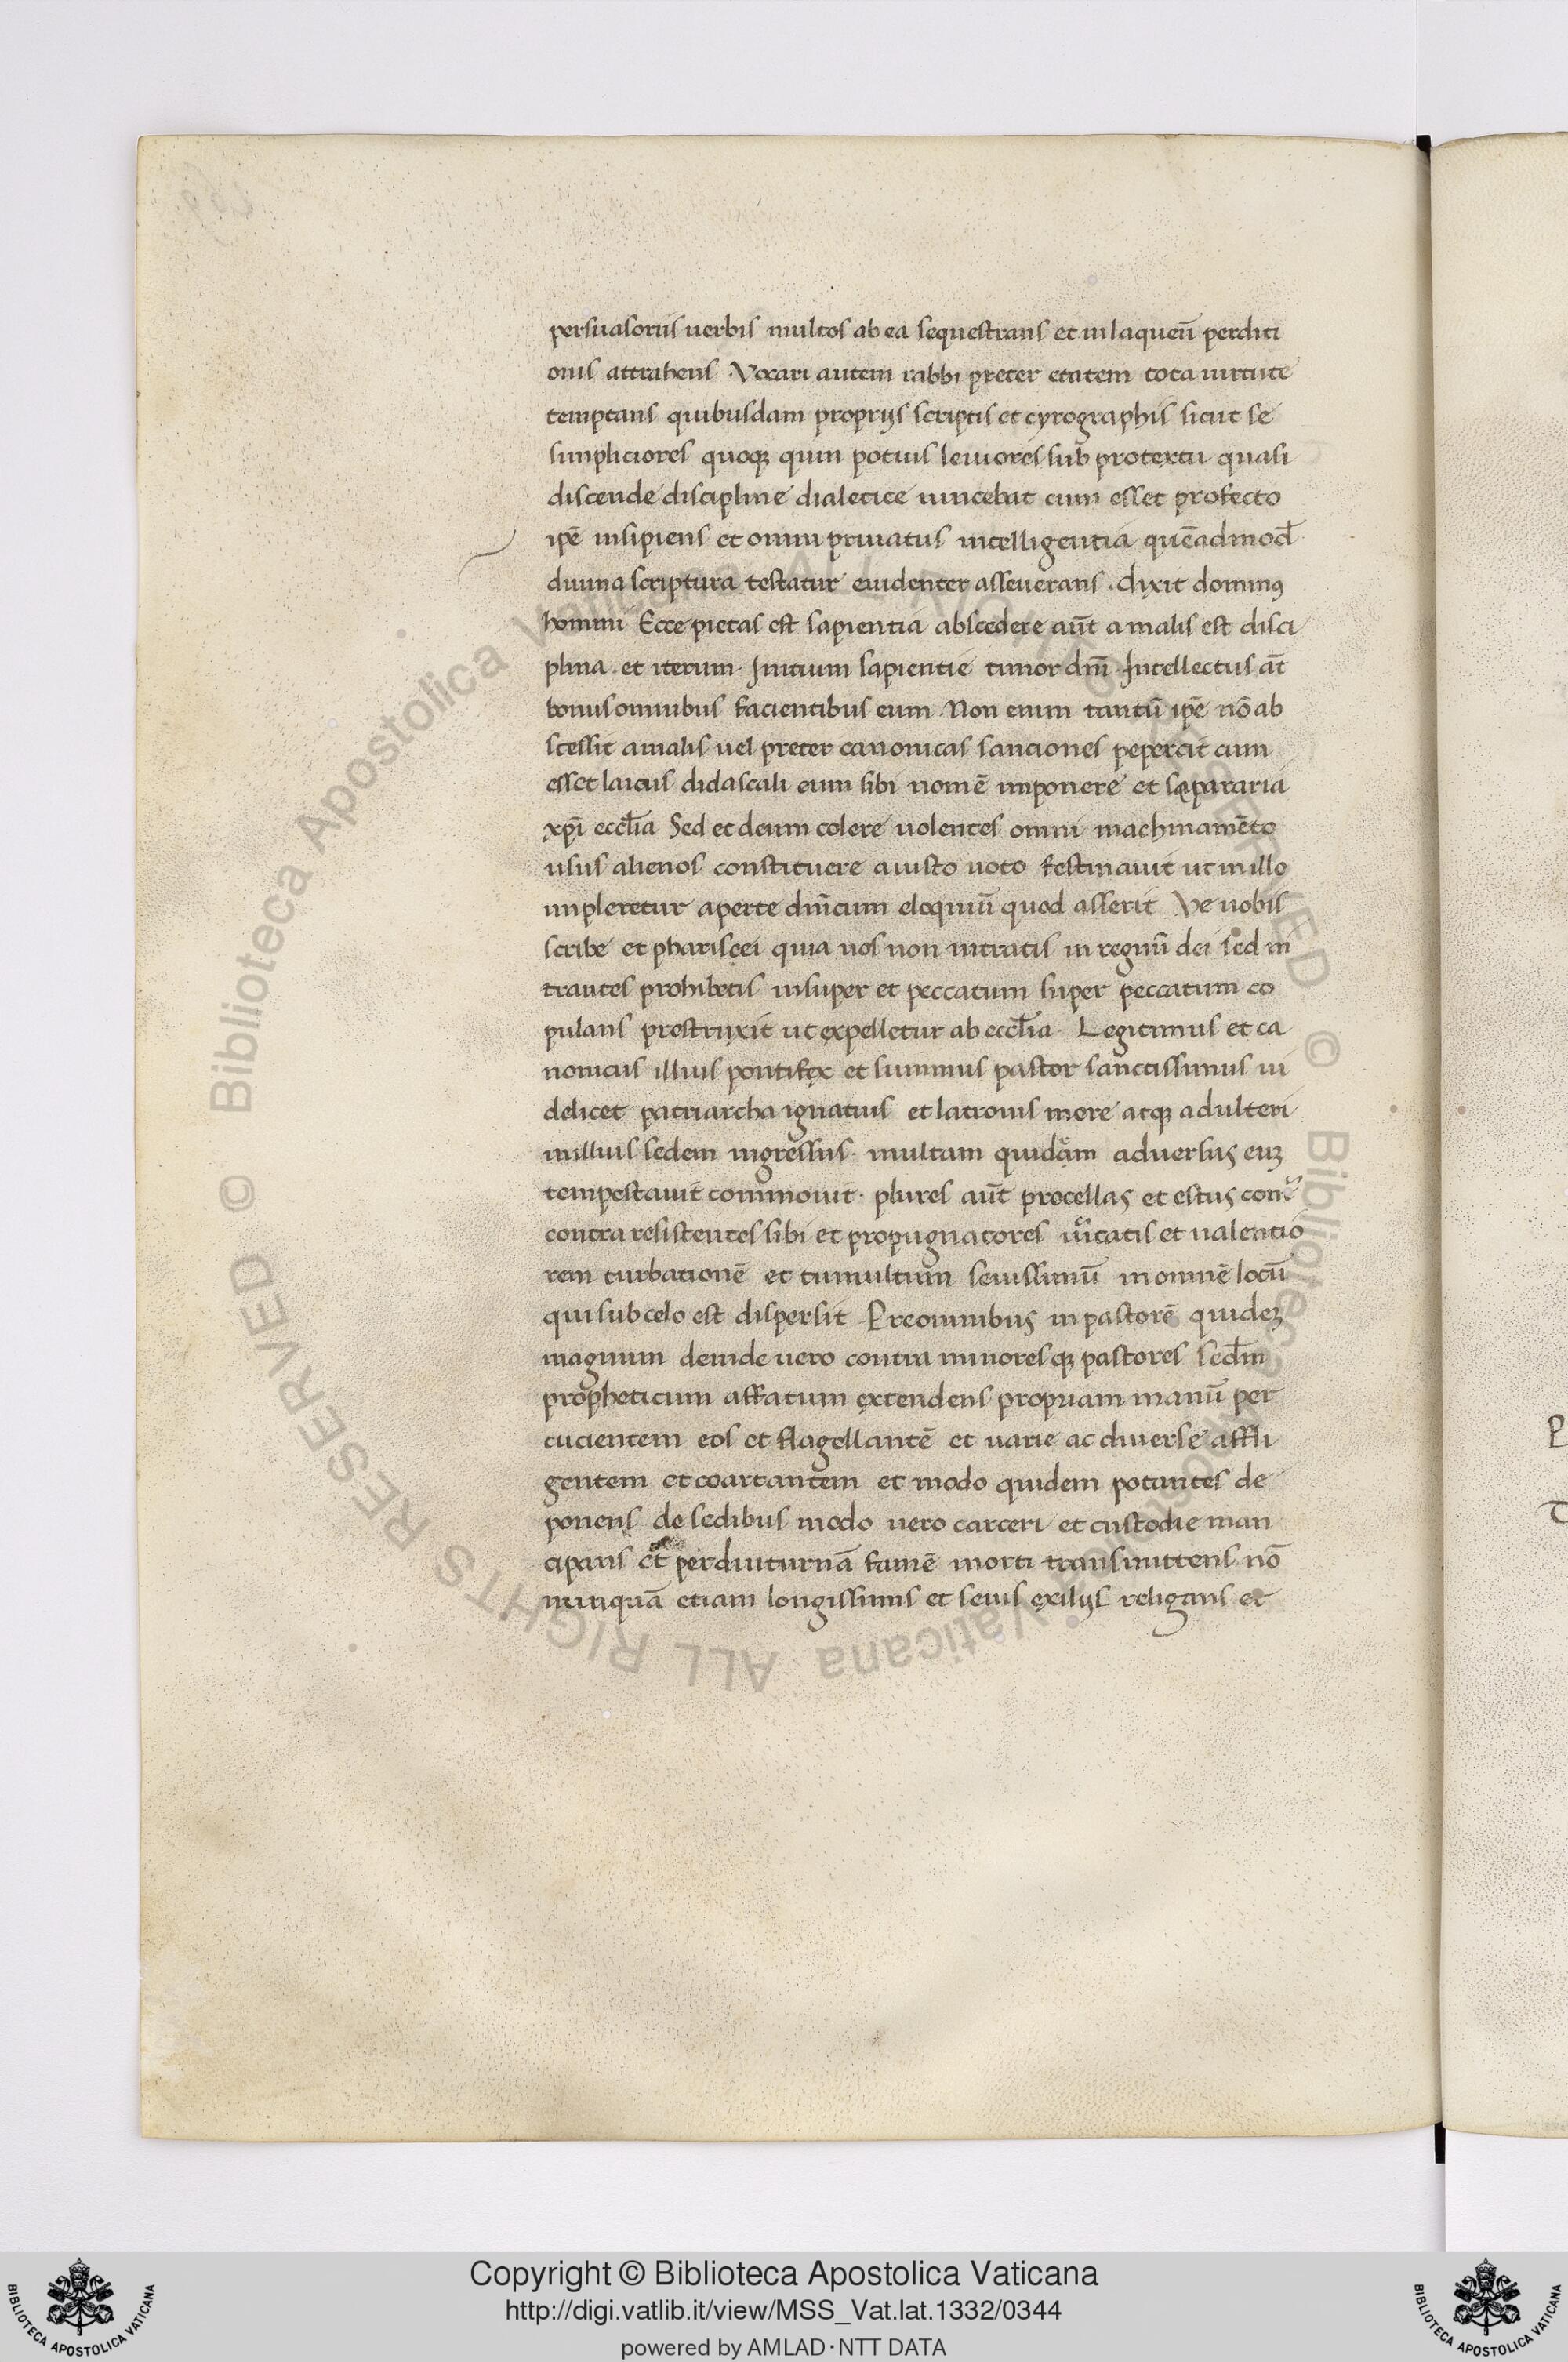 persuasoriis uerbis multos ab ea sequestrans et in laqueū perditi
onis attrahens . Vocari autem rabbi preter etatem tota uirtute
temptans quibusdam proprijs scriptis et cyrographis sicut se
simpliciores quoqꝫ quin potius leuiores sub protextu quasi
discende discipline dialetice uincebat cum esset profecto
ip̄e insipiens et omni priuatus intelligentia quēadmod̄
diuina scriptura testatur euidenter asseuerans . dixit dominꝰ
homini Ecce pietas est sapientia abscedere aūt a malis est disci
plina . et iterum . Initium sapientie timor dn̄i . Intellectus āt
bonus omnibus facientibus eum . Non enim tantū ip̄e nō ab
scessit a malis uel preter canonicas sanctiones pepercit cum
esset laicus didascali eum sibi nomē imponere et separari a
xp̄i eccl̄ia Sed et deum colere uolentes omni machinamēto
usus alienos constituere a iusto uoto festinauit ut in illo
impleretur aperte dn̄icum eloquiū quod asserit Ve uobis
scribe et phariseei quia uos non intratis in regnū dei sed in
trantes prohibetis insuper et peccatum super peccatum co
pulans prestruxit ut expelletur ab eccl̄ia . Legitimus et ca
nonicus illius pontifex et summus pastor sanctissimus ui
delicet patriarcha ignatius et latronis more atqꝫ adulteri
in illius sedem ingressus . multam quidam aduersus euꝫ
tempestauit commouit . plures aūt procellas et estus
contra resistentes sibi et propugnatores ueritatis et ualentio
rem turbationē et tumultum seuissimū in omnē locū
qui sub celo est dispersit Preominibus in pastorē quideꝫ
magnum deinde uero contra minoresqꝫ pastores sed̄m
propheticum affatum extendens propriam manū per
cucientem eos et flagellantē et uarie ac diuerse affli
gentem et coartantem et modo quidem potantes de
ponens de sedibus modo uero carceri et custodie man
cipans et per diuturnā famē morti transmittens nō
nunquā etiam longissimis et seuis exilijs religans et
Copyright © Biblioteca Apostolica Vaticana
http://digi.vatlib.it/view/MSS_Vat.lat.1332/0344
powered by AMLAD·NTT DATA
BIBLIOTECA APOSTOLICA VATICANA
BIBLIOTECA APOSTOLICA VATICANA
© Biblioteca Apostolica Vaticana ALL RIGHTS RESERVED © Biblioteca Apostolica Vaticana ALL RIGHTS RESERVED